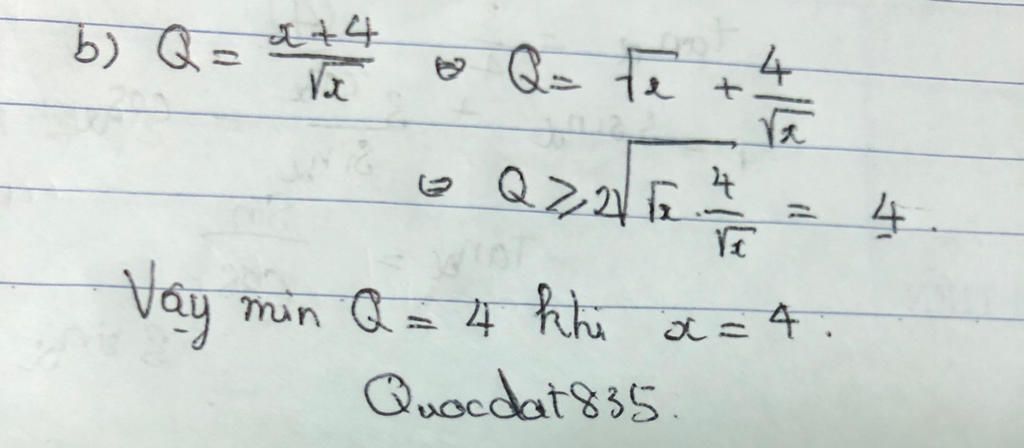 b) Q = x+4/√x ⇔ Q = √x + 4/√x
⇔ Q ⩾ 2√(√x . 4/√x) = 4.
Vậy min Q = 4 khi x = 4.
Quocdat835.